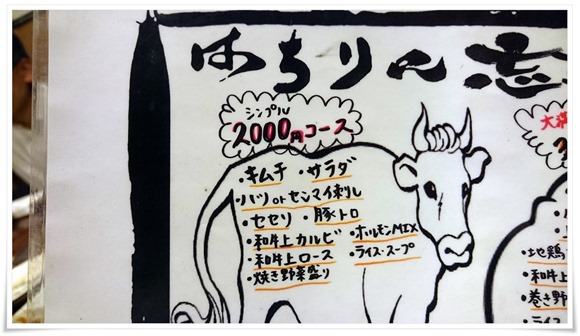 はちりん 志
シンプル
2000円コース
・キムチ ・サラダ
・ハツorセンマイ刺し
・セセリ ・豚トロ
・和牛上カルビ ・ホルモンMIX
・和牛上ロース ・ライス・スープ
・焼き野菜盛り
大満
・地鶏
・和牛上
・巻き野
・ライス